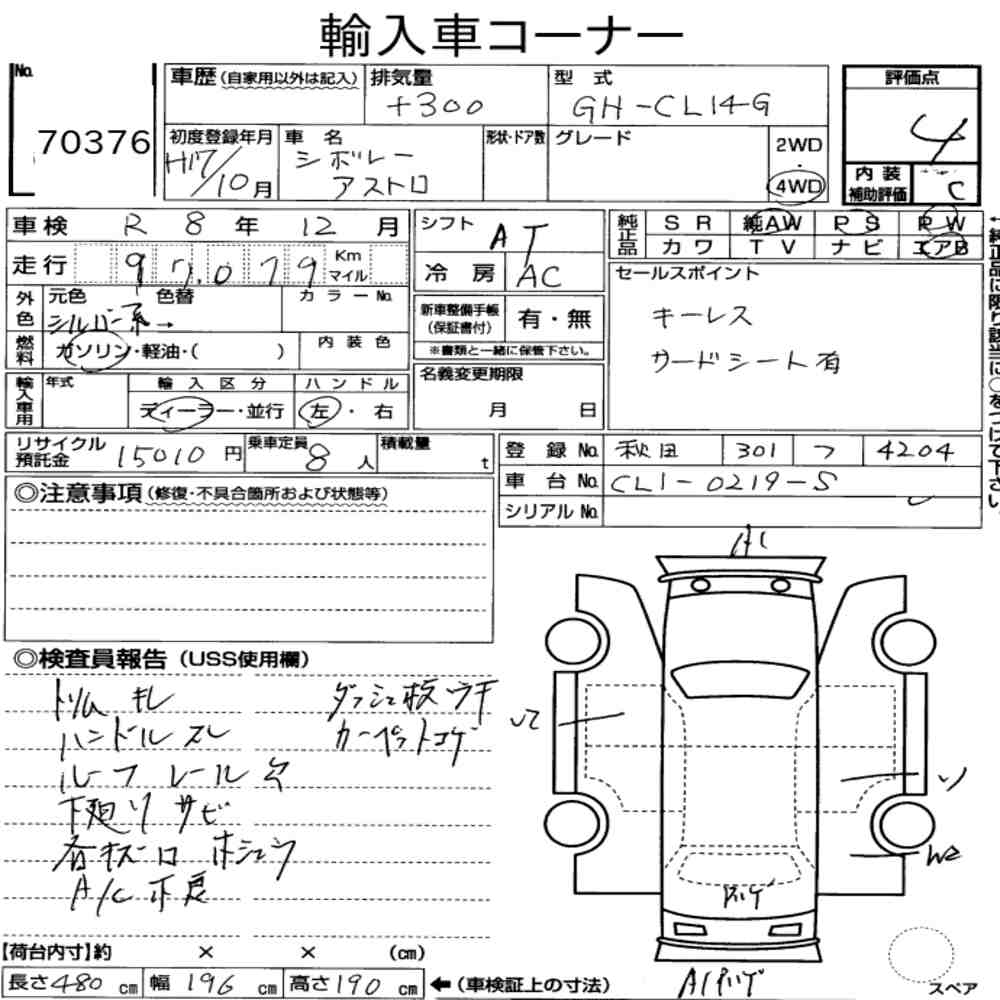 輸入車コーナー
No.
70376
車歴(自家用以外は記入)
排気量
4300
型 式
GH-CL14G
評価点
4
初度登録年月
H17/10月
車 名
シボレー
アストロ
形状・ドア数
グレード
2WD
・
4WD
内 装
補助評価
C
車検 R 8 年 12 月
シフト
AT
純正品
SR 純AW PS PW
カワ TV ナビ エアB
←純正品に限り該当に○をつけて下さい。
走行 97,079 Km マイル
冷 房 AC
セールスポイント
キーレス
サードシート有
外色
元色 色替
シルバー系→
カラーNo.
新車整備手帳
(保証書付)
有・無
※書類と一緒に保管下さい。
燃料
ガソリン・軽油・( )
内 装 色
輸入車用
年式
輸 入 区 分
ディーラー・並行
ハ ン ド ル
左・右
名義変更期限
月 日
リサイクル
預託金
15010 円
乗車定員
8 人
積載量
t
登 録 No. 秋田 301 フ 4204
車 台 No. CL1-0219-S
シリアルNo.
◎注意事項(修復・不具合箇所および状態等)
◎検査員報告(USS使用欄)
トリム キレ
ダッシュ板ウキ
ハンドル スレ
カーペットコゲ
ルーフ レール 欠
下廻り サビ
各キズ凹 ホシュウ
A/C不良
A1
W2
【荷台内寸】約 × × (cm)
長さ480 cm 幅 196 cm 高さ190 cm ←(車検証上の寸法)
スペア